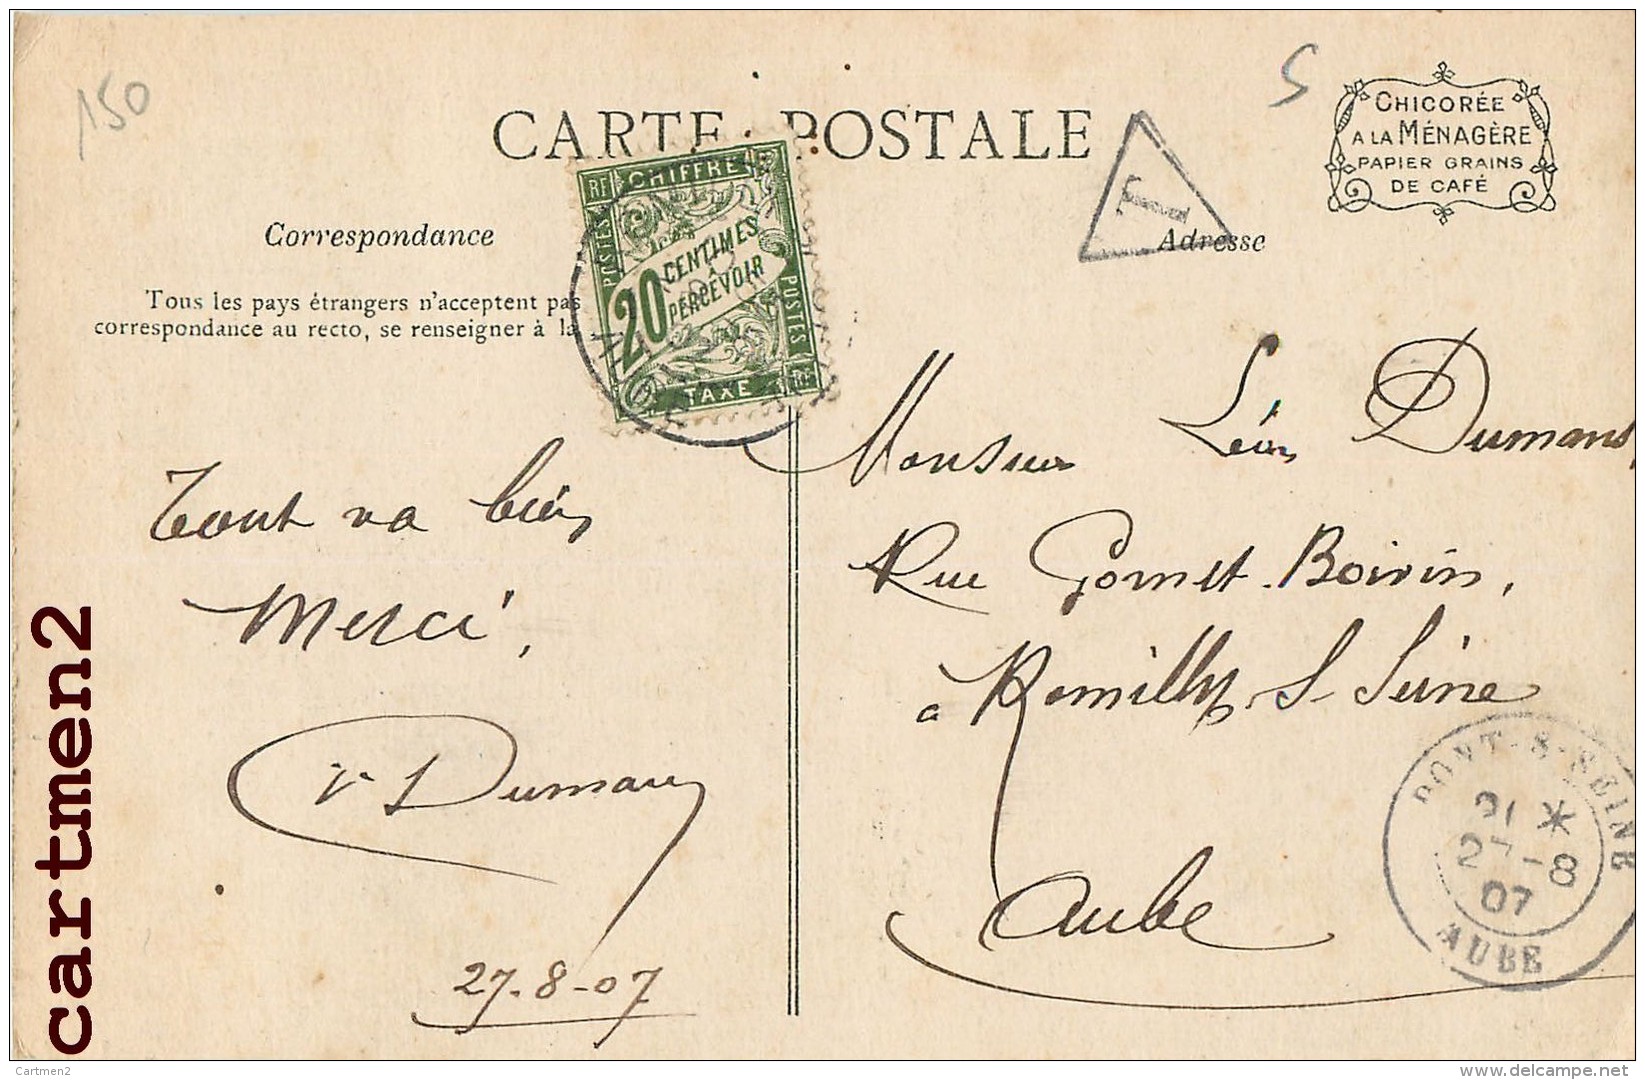 150
S
CHICORÉE
A LA MÉNAGÈRE
PAPIER GRAINS
DE CAFÉ
CARTE POSTALE
T
Correspondance
Adresse
Tous les pays étrangers n'acceptent pas
correspondance au recto, se renseigner à la
RF CHIFFRE
POSTES
20 CENTIMES
A
PERCEVOIR
POSTES
TAXE RF
Tout va bien
Merci,
Dumans
27-8-07
Monsieur Léon Dumans,
Rue Gornet-Boivin,
à Romilly S- Seine
Aube
PONT-S-SEINE
27-8
07
AUBE
cartmen2
Cartmen2
delcampe.net